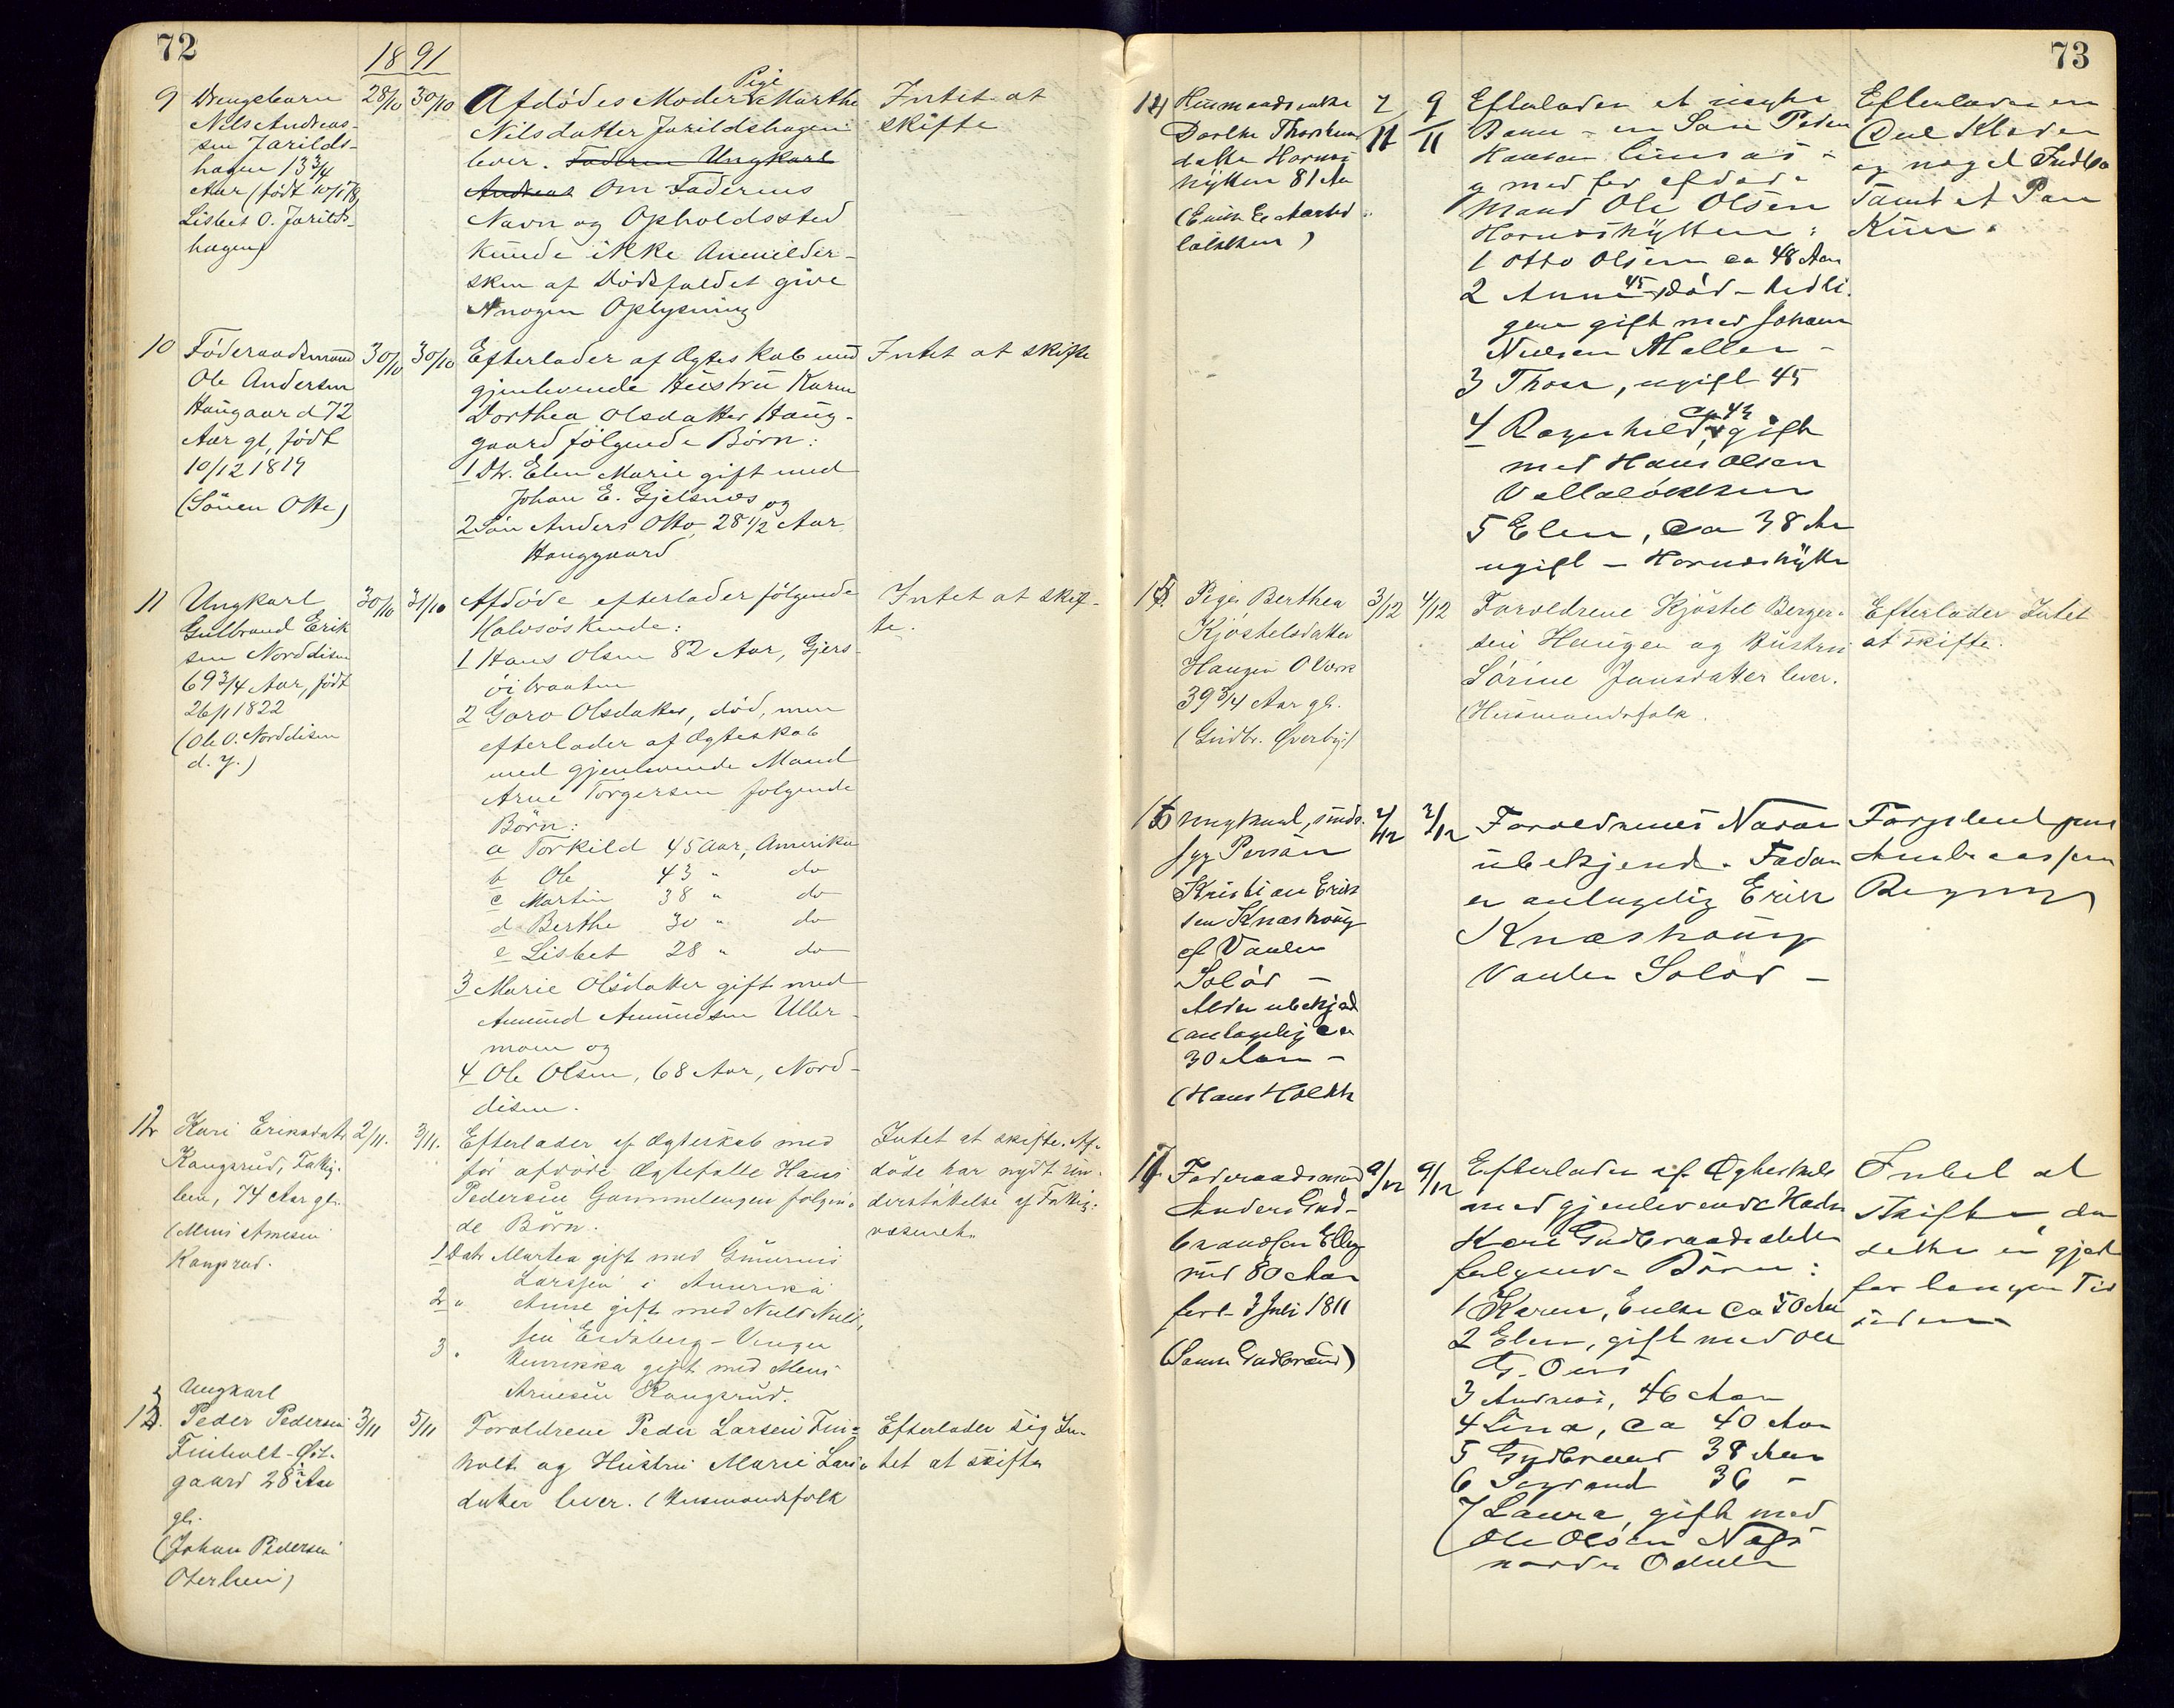 72
1891
9
Drengebarn
Nils Andreas-
sen Jarilds-
hagen 13 3/4
Aar (født 10/1 78,
Lisbet O. Jarilds-
hagen)
28/10 30/10
Afdødes Moder Pige Marthe
Nilsdatter Jarildshagen
lever. Faderen Ungkarl
Andreas Om Faderens
Navn og Opholdssted
kunde ikke Anmelder-
sken af Dødsfaldet give
nogen Oplysning
Intet at
skifte
10
Föderaadsmand
Ole Andersen
Haugaard 72
Aar gl, født
10/12 1819
(Sönen Otto)
30/10 30/10
Efterlader af Ægteskab med
gjenlevende Hustru Karen
Dorthea Olsdatter Haug-
gaard følgende Börn:
1 Dtr. Elen Marie gift med
Johan E. Gjelsnæs og
2 Sön Anders Otto, 28 1/2 Aar
Hauggaard
Intet at skifte
11
Ungkarl
Gulbrand Erik
sen Norddisen
69 3/4 Aar, født
26/1 1822
(Ole O. Norddisen
d. y.)
30/10 31/10
Afdöde efterlader følgende
Halvsöskende:
1 Hans Olsen 82 Aar, Gjers-
öibraaten
2 Goro Olsdatter, död, men
efterlader af Ægteskab
med gjenlevende Mand
Arne Torgersen følgende
Börn:
a Torkild 45 Aar, Amerika
b Ole 43 " do
c Martin 38 " do
d Berthe 30 " do
e Lisbet 28 " do
3 Marie Olsdatter gift med
Amund Amundsen Uller-
moen og
4 Ole Olsen, 68 Aar, Nord-
disen.
Intet at skif-
te.
12
Kari Eriksdatr
Kangsrud, Fattig-
lem, 74 Aar gl.
(Mens Arnesen
Kangsrud.
2/11. 3/11.
Efterlader af Ægteskab med
før afdöde Ægtefælle Hans
Pedersen Gammelengen følgen-
de Börn:
1 Datr Martea gift med Gunerius
Larssen i Amerika
2 " Anne gift med Nils Nils-
sen Eidsberg - Vinger
3 " Henrikka gift med Mens
Arnesen Kangsrud.
Intet at skifte. Af-
döde har nydt un-
derstöttelse af Fattig-
væsenet.
13.
Ungkarl
Peder Pedersen
Finholt - Øst-
gaard 28 Aar
gl.
(Johan Pedersen
Oterlien)
3/11 5/11
Forældrene Peder Larsen Fin-
holt og Hustru Marie Lars-
datter lever. (Husmandsfolk
Efterlader sig In-
tet at skifte
73
14
Husmandsenke
Dorthe Thorstens
datter Hornes
hytten 81 Aar
7/11 9/11
Efterlader et uægte
Barn - en Søn Peder
Hansen
og med før afdøde
Mand Ole Olsen
Horneshytten:
1 Otto Olsen ca 48 Aar
2 Anne 45 død - tidli-
gere gift med Johan
Nielsen Møller -
3 Thore, ugift 45
4 Ragnhild, ca 43 gift
med Hans Olsen
Vallaløkken
5 Elen, ca 38 Aar
ugift - Horneshytte
Efterlader en
Del Klæder
og noget Indbo
samt et Par
Kuer.
15.
Pige Berthea
Kjöstelsdatter
Haugen O Værk
39 3/4 Aar gl.
(Gudbr. Øverby)
3/12 4/12
Forældrene Kjöstel Berger-
sen Haugen og Hustru
Sörine Jansdatter lever.
(Husmandsfolk.
Efterlader Intet
at skifte.
16
Ungkarl, sinds-
syg Person
Kristian Erik
sen Knashaug
af Vaaler
Solör -
Alder ubekjendt
(antagelig ca
30 Aar -
(Hans Holth
2/12 2/12
Forældrenes Navne
ubekjendt. Faderen
er antagelig Erik
Knashaug
Vaaler Solör -
Forpleiet paa
17
Föderaadsmand
Anders Gud-
brandsen Elling
rud 80 Aar
født 3 Juli 1811
(Sønn Gudbrand)
9/12 9/12
Efterlader af Ægteskab
med gjenlevende Kone
Kari Gudbrandsdatter
følgende Börn:
1 Karen, Enke ca 50 Aar
2 Elen, gift med Ole
G. Ous
3 Andreas, 46 Aar
4 Lina, ca 40 Aar
5 Gudbrand 38 Aar
6 Sigvard 36 -
7 Laura, gift med
Ole Olsen Næs
nordre Odalen
Intet at
skifte, da
dette er gjort
for længere Tid
siden